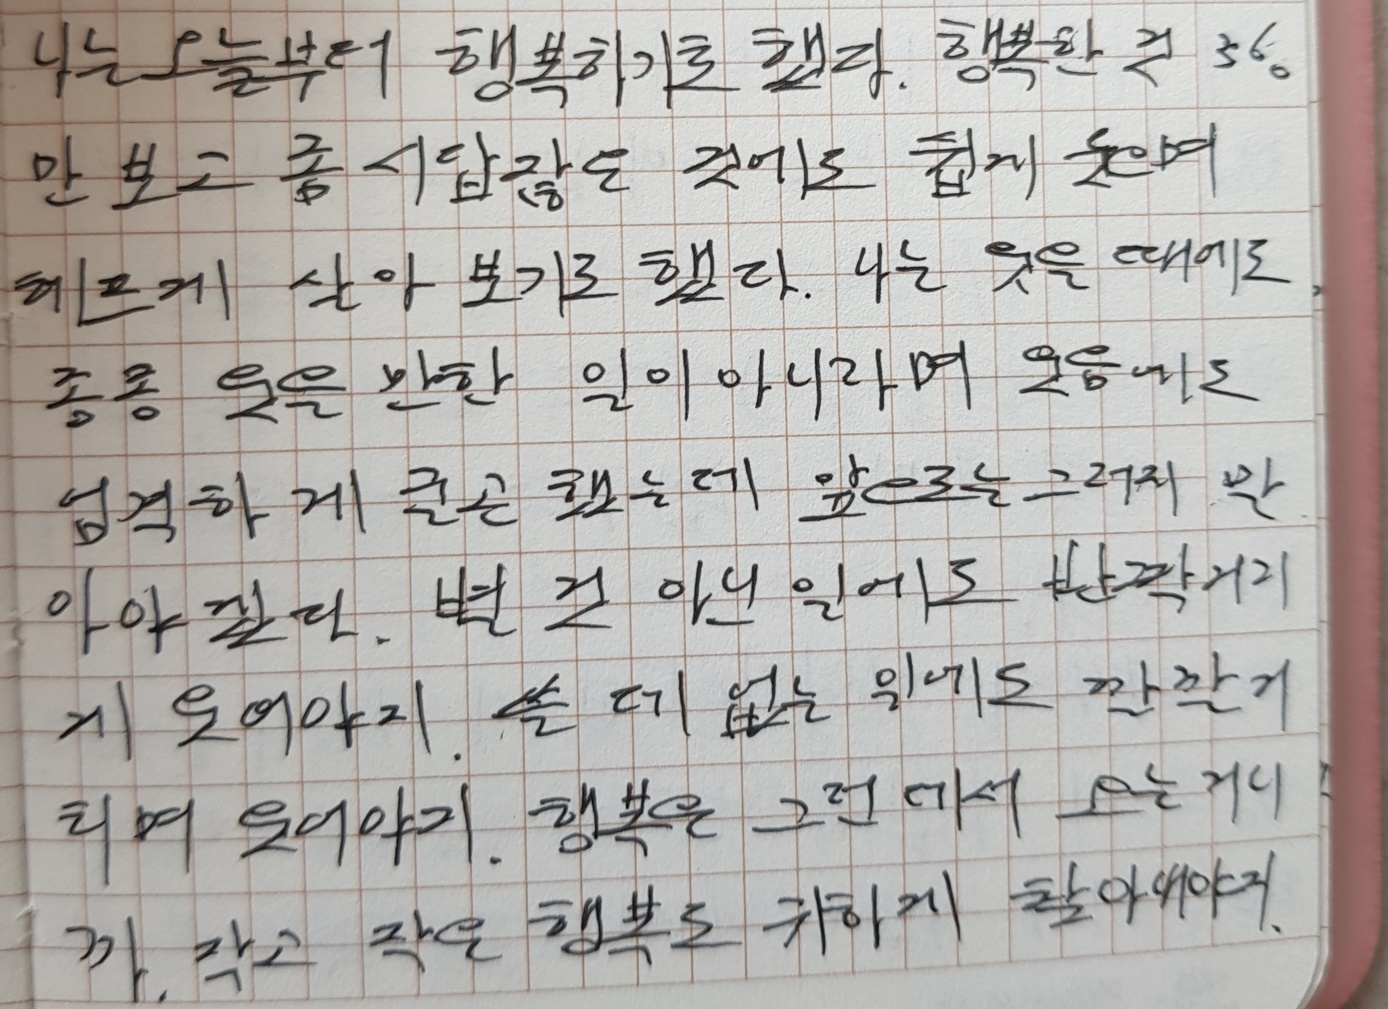 나는 오늘부터 행복하기로 했다. 행복한 건
만 보고 좀 시답잖은 것에도 쉽게 웃으며
헤프게 살아 보기로 했다. 나는 웃을 때에도
종종 웃을 만한 일이 아니라며 웃음에도
엄격하게 굴곤 했는데 앞으로는 그러지 말
아야겠다. 별 것 아닌 일에도 반짝거리
게 웃어야지. 쓸 데 없는 일에도 깔깔거
리며 웃어야지. 행복은 그런 데서 오는 거니
까. 작고 작은 행복도 귀하게 핥아대야지.